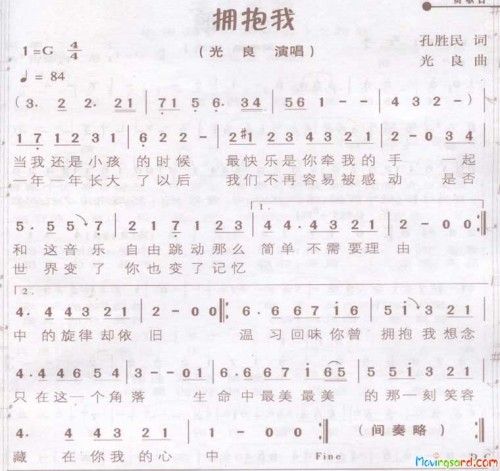 拥抱我
1=G 4/4
(光 良 演唱)
孔胜民 词
♩= 84
光 良 曲
(3. 2 2. 21 | 71 5 6. 34 | 561 - - | 432 - )
171231 | 622 - - | 2#123034321 | 2 - 034 |
当我还是小孩 的时候 最快乐是你牵我的 手 一起
一年一年长大 了以后 我们不再容易被感动 是否
5. 5 5 7 | 2 1 7 1 2 3 | 1. 44. 44321 | 2 - 00 :|
和 这音乐 自由跳动那么 简单 不需要理 由
世 界变了 你也变了记忆
2. 4. 44321 | 2 - 00 :| 6. 66671 6 | 551 5 321 |
中 的旋律却依 旧 温 习回味你曾 拥抱我 想念
4. 44654 | 3 - - 01 | 6. 6667165 | 5515321 |
只在这一个角落 生命中最美最美 的那一刻笑容
4. 44321 | 1 - 00 :| (间奏略) :|
藏 在你我的心 中 Fine D.C